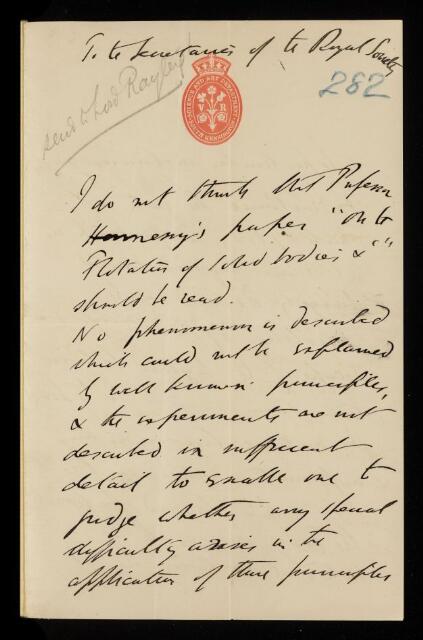 To the Secretaries of the Royal Society
send to Lord Rayleigh
282
SCIENCE AND ART DEPARTMENT
V R
SOUTH KENSINGTON
I do not think that Professor
Hennessy's paper "on the
Flotation of solid bodies &c"
should be read.
No phenomenon is described
which could not be explained
by well known principles,
& the experiments are not
described in sufficient
detail to enable one to
judge whether any special
difficulty arises in the
application of these principles